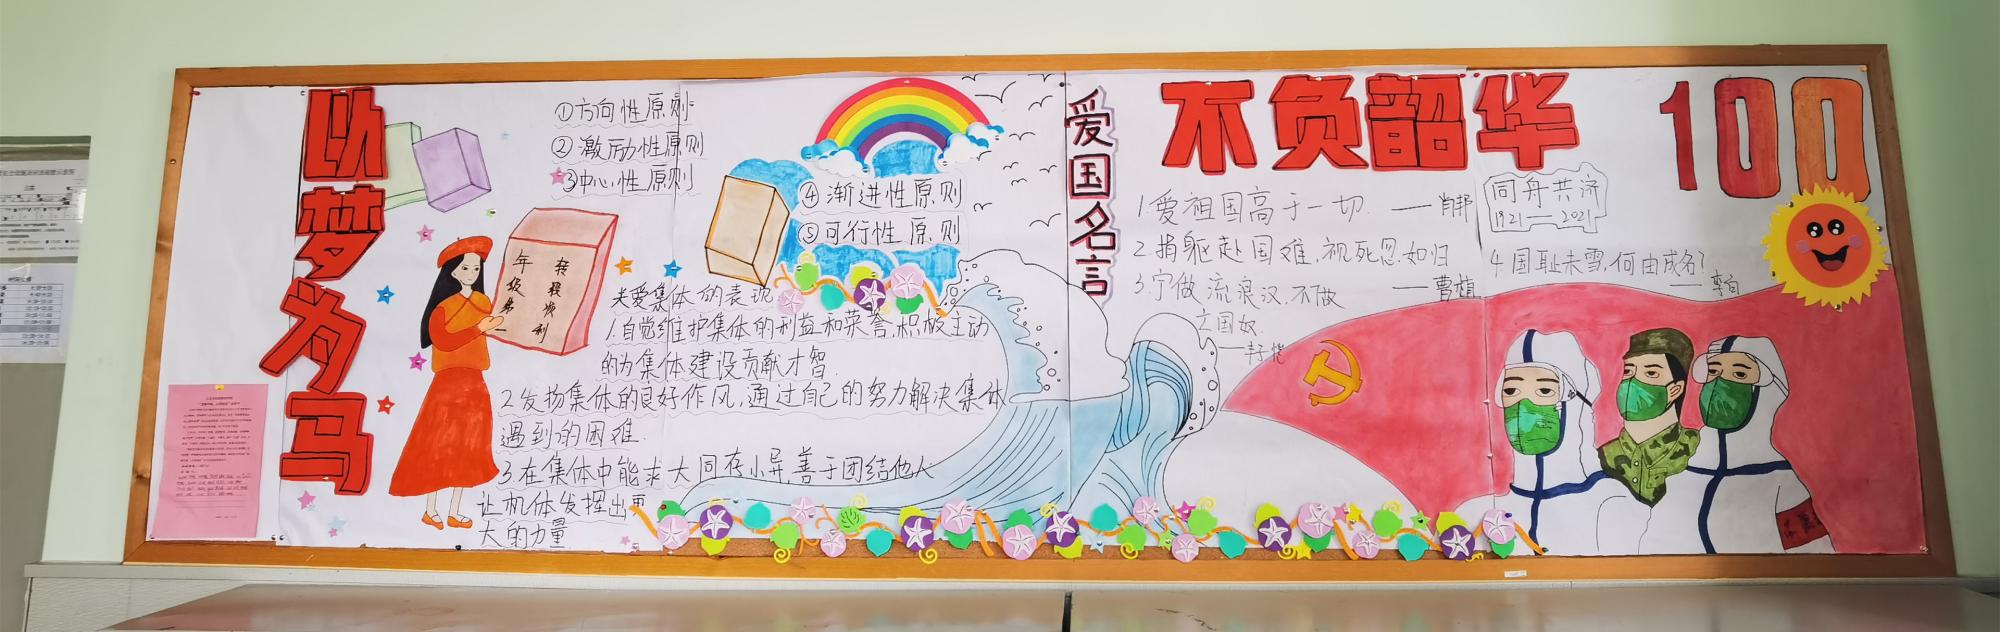 以梦为马
①方向性原则
②激励性原则
③中心性原则
④渐进性原则
⑤可行性原则
年级第一
转段顺利
关爱集体的表现
1.自觉维护集体的利益和荣誉,积极主动
的为集体建设贡献才智.
2.发扬集体的良好作风,通过自己的努力解决集体
遇到的困难.
3.在集体中能求大同存小异,善于团结他人
让机体发挥出更
大的力量
爱国名言
不负韶华
100
1.爱祖国高于一切. ——肖邦
2.捐躯赴国难,视死忽如归
——曹植
3.宁做流浪汉,不做
亡国奴.
同舟共济
1921——2021
4.国耻未雪,何由成名?
——李白